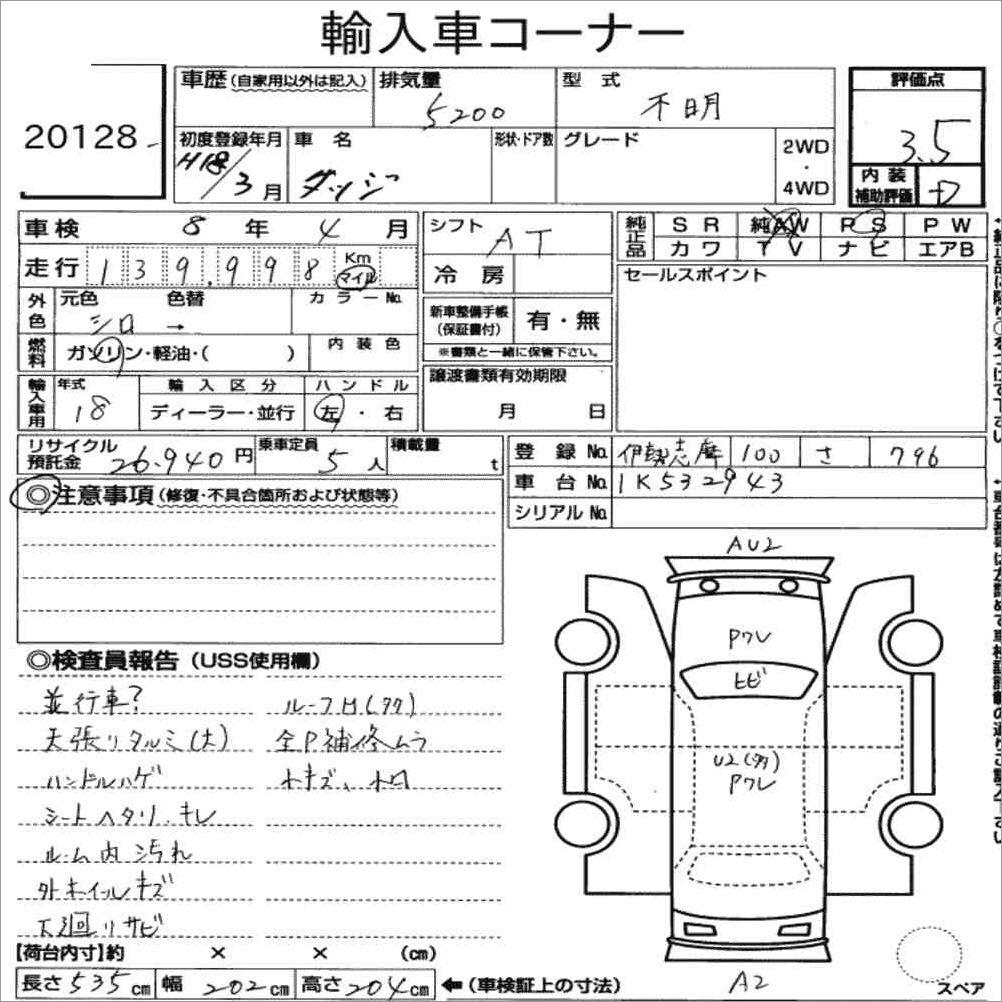 輸入車コーナー
20128
車歴(自家用以外は記入) 排気量 5200 型式 不明
初度登録年月 H18/3月 車名 ダッジ 形状・ドア数 グレード 2WD・4WD
評価点 3.5
内装補助評価 D
車検 8年 4月
走行 139,998 Km マイル
外色 元色 シロ → 色替 カラーNo.
燃料 ガソリン・軽油・( ) 内装色
輸入車用 年式 18 輸入区分 ディーラー・並行 ハンドル 左・右
リサイクル預託金 26.940円 乗車定員 5人 積載量 t
シフト AT
冷房
新車整備手帳(保証書付) 有・無
※書類と一緒に保管下さい。
譲渡書類有効期限 月 日
純正品 SR 純AW PS PW
カワ TV ナビ エアB
セールスポイント
登録No. 伊勢志摩 100 さ 796
車台No. 1K532943
シリアルNo.
◎注意事項(修復・不具合箇所および状態等)
◎検査員報告(USS使用欄)
並行車?
天張リタルミ(大)
ハンドルハゲ
シートヘタリ・キレ
ルーム内汚れ
外ホイルキズ
下廻リサビ
全P補修ムラ
AU2
Pワレ
ヒビ
Pワレ
A2
スペア
【荷台内寸】約 × × (cm)
長さ535cm 幅202cm 高さ204cm ←(車検証上の寸法)